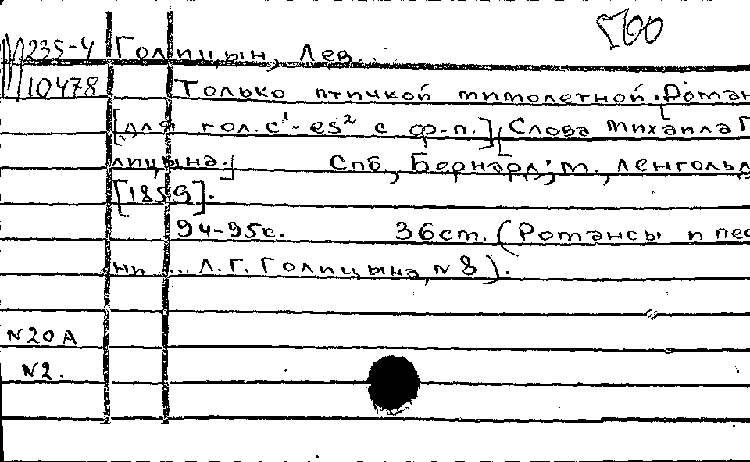 500
М235-4 Голицын, Лев...
10478 Только птичкой мимолетной. Роман
[для гол. c¹-es² с ф-п.] [Слова Михаила Го
лицына.] Спб, Бернард; М., Ленгольд
[1859].
94-95с. 36см. (Романсы и пес
ни ... Л.Г. Голицына, N 8).
N20A
N2.